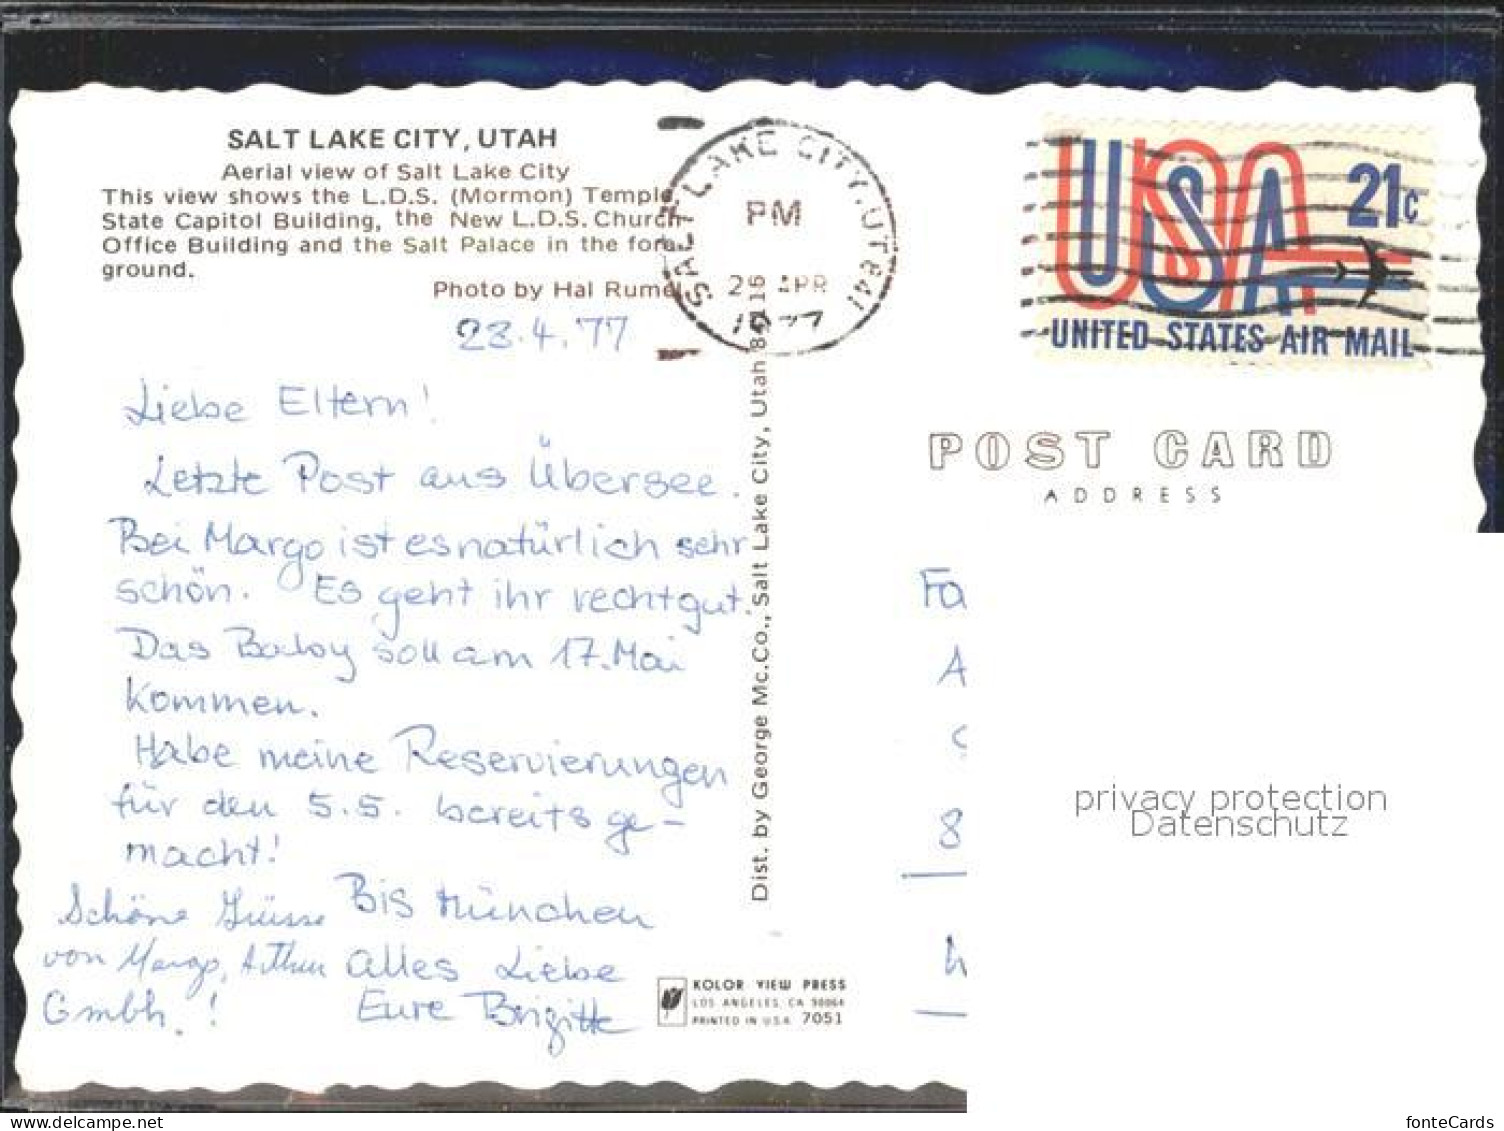 SALT LAKE CITY, UTAH
Aerial view of Salt Lake City
This view shows the L.D.S. (Mormon) Temple,
State Capitol Building, the New L.D.S. Church
Office Building and the Salt Palace in the fore-
ground.
Photo by Hal Rumel
SALT LAKE CITY, UT 841
PM
26 APR
1977
USA 21c
UNITED STATES AIR MAIL
23.4.77
Liebe Eltern!
Letzte Post aus Übersee.
Bei Margo ist es natürlich sehr
schön. Es geht ihr recht gut.
Das Baby soll am 17. Mai
kommen.
Habe meine Reservierungen
für den 5.5. bereits ge-
macht!
Bis München
Alles Liebe
Eure Brigitte
Schöne Grüsse
von Margo, Arthur
GmbH.!
Dist. by George Mc.Co., Salt Lake City, Utah 84116
POST CARD
ADDRESS
Fa
A
8
KOLOR VIEW PRESS
LOS ANGELES, CA 90064
PRINTED IN U.S.A. 7051
privacy protection
Datenschutz
www.delcampe.net
fonteCards